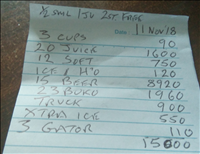 FREE
Date 11 Nov 18
3 CUPS 90
20 JUICE 1600
12 SOFT 750
ICE & H2O 120
BEER 8920
23 BUKO 1960
TRUCK 900
XTRA ICE 550
3 GATOR 110
15000